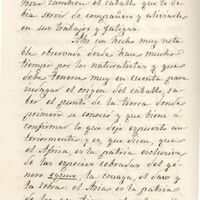 mero tambien el caballo que le de
bia servir de compañero y aliviarle
en sus trabajos y fatigas.
Un hecho muy nota
ble observado desde hace mucho
tiempo por los naturalistas y que
debe tenerse muy en cuenta para
indagar el origen del caballo, sa
ber el punto de la tierra donde
primero se conoció y que viene a
confirmar lo que dejo espuesto an
teriormente; es, que dicen, que
el Africa, es la patria exclusiva
de las especies cebradas del gé
nero equus, la couaga, el daw y
la zebra: el Asia es la patria